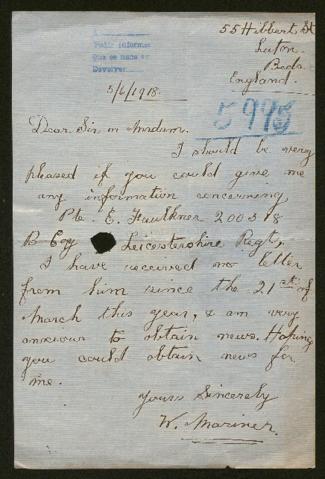 55 Hibbert St
Luton.
Beds.
England.
Pedir informes
Que se haga
Devolver
5/6/1918.
5995
Dear Sir or Madam.
I should be very
pleased if you could give me
any information concerning
Pte. E. Faulkner 200318
B Coy Leicestershire Regt,
I have received no letter
from him since the 21st of
March this year, & am very
anxious to obtain news. Hoping
you could obtain news for
me.
Yours Sincerely
W. Mariner.